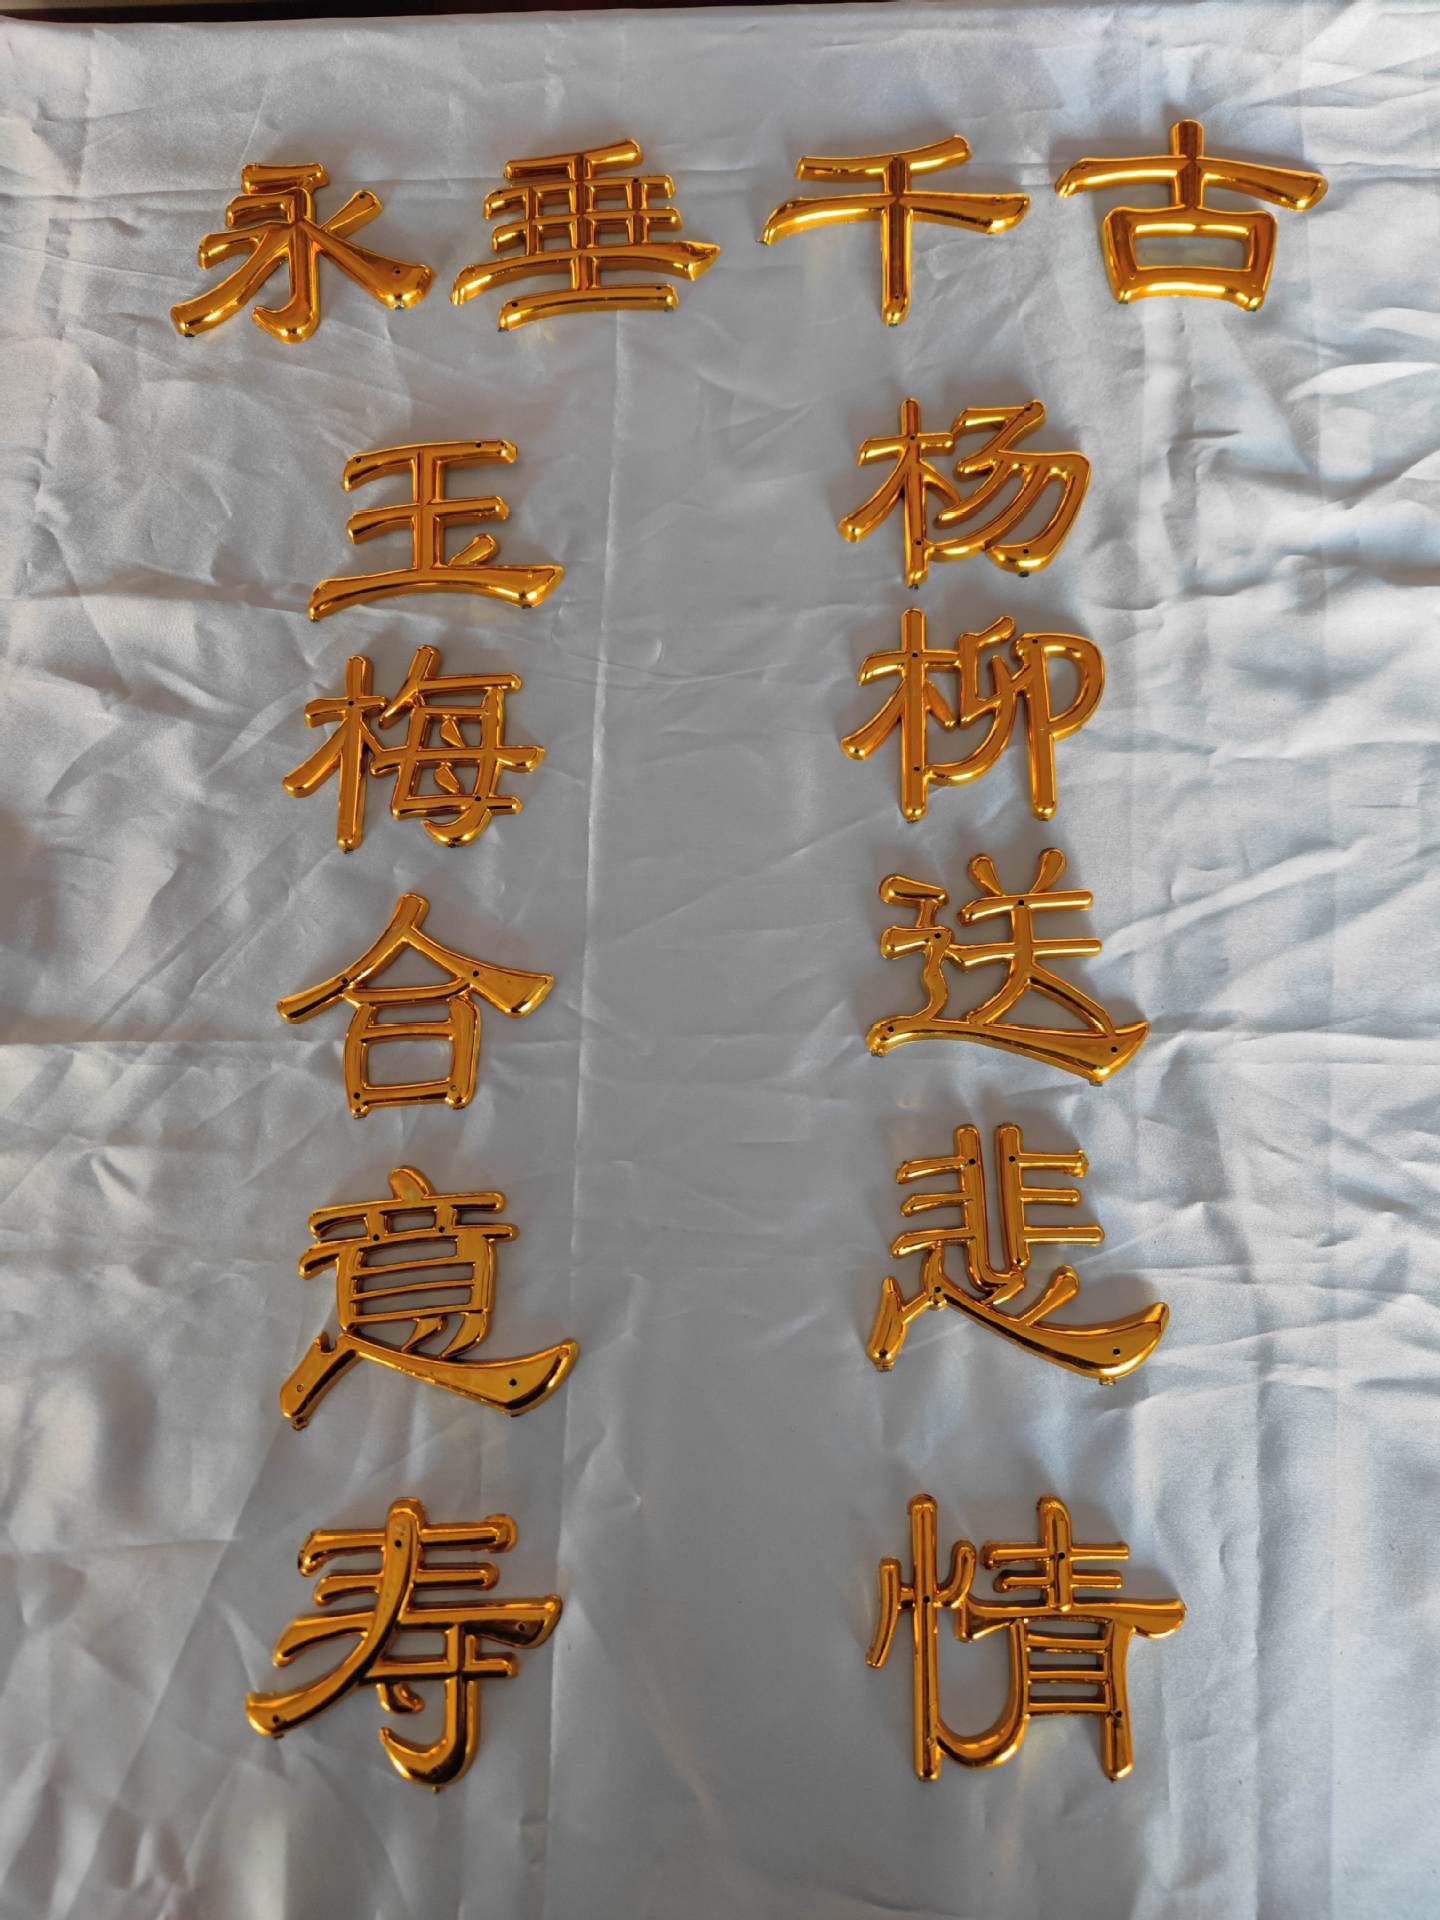 永垂千古
杨柳送悲情
玉梅合意寿